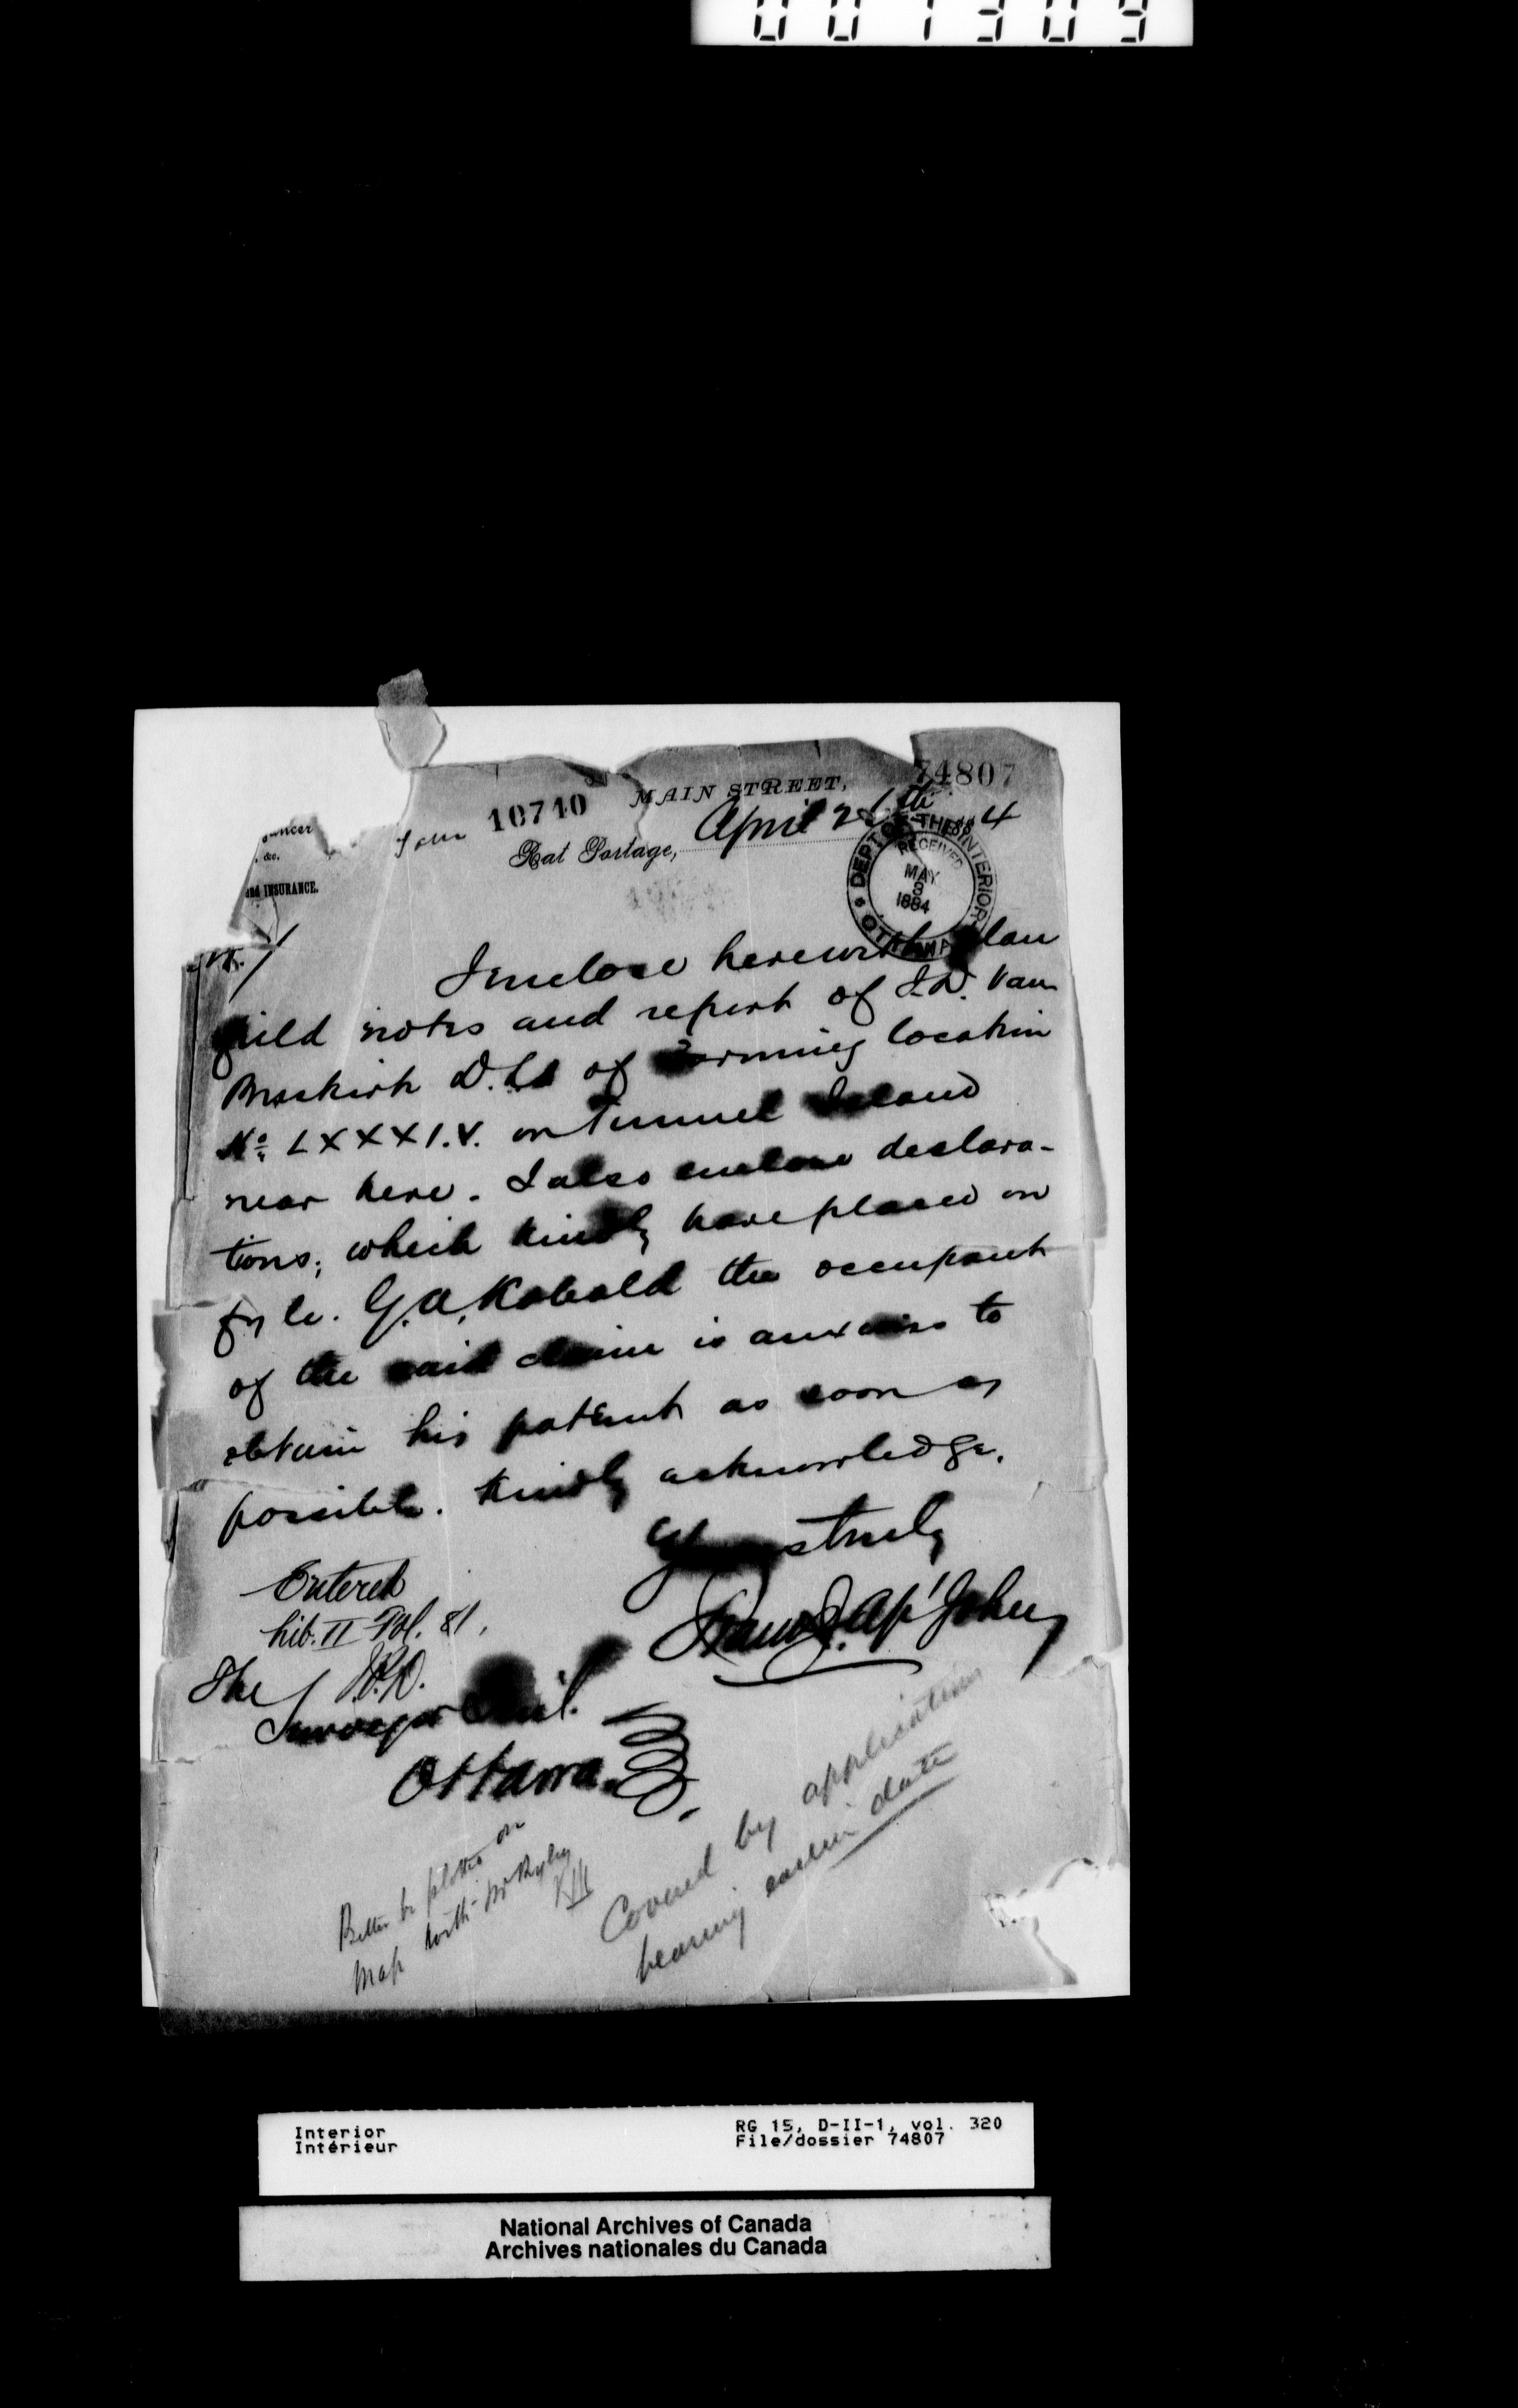 001309
MAIN STREET,
74807
10710
Rat Portage, April 1884
&c.
and INSURANCE.
DEPT OF THE INTERIOR
RECEIVED
MAY
3
1884
OTTAWA
I enclose herewith plan
field notes and report of J.D. Van
Buskirk D.L.S of mining location
No. LXXXI.V. on Tunnel Island
near here. I also enclose declara-
tions, which kindly have placed on
fyle. G.A. Kobold the occupant
of the said claim is anxious to
obtain his patent as soon as
possible. Kindly acknowledge.
Yours truly
Ap'John
Entered
Lib. II Fol. 81.
The
Surveyor Genl.
Ottawa.
Better be plotted on
map north
Covered by application
bearing earlier date
Interior
Intérieur
RG 15, D-II-1, vol. 320
File/dossier 74807
National Archives of Canada
Archives nationales du Canada